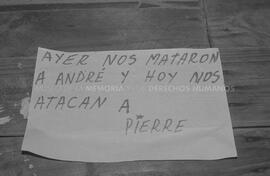 AYER NOS MATARON
A ANDRÉ Y HOY NOS
MUSEO DE LA MEMORIA Y LOS DERECHOS HUMANOS
ATACAN A
PIERRE